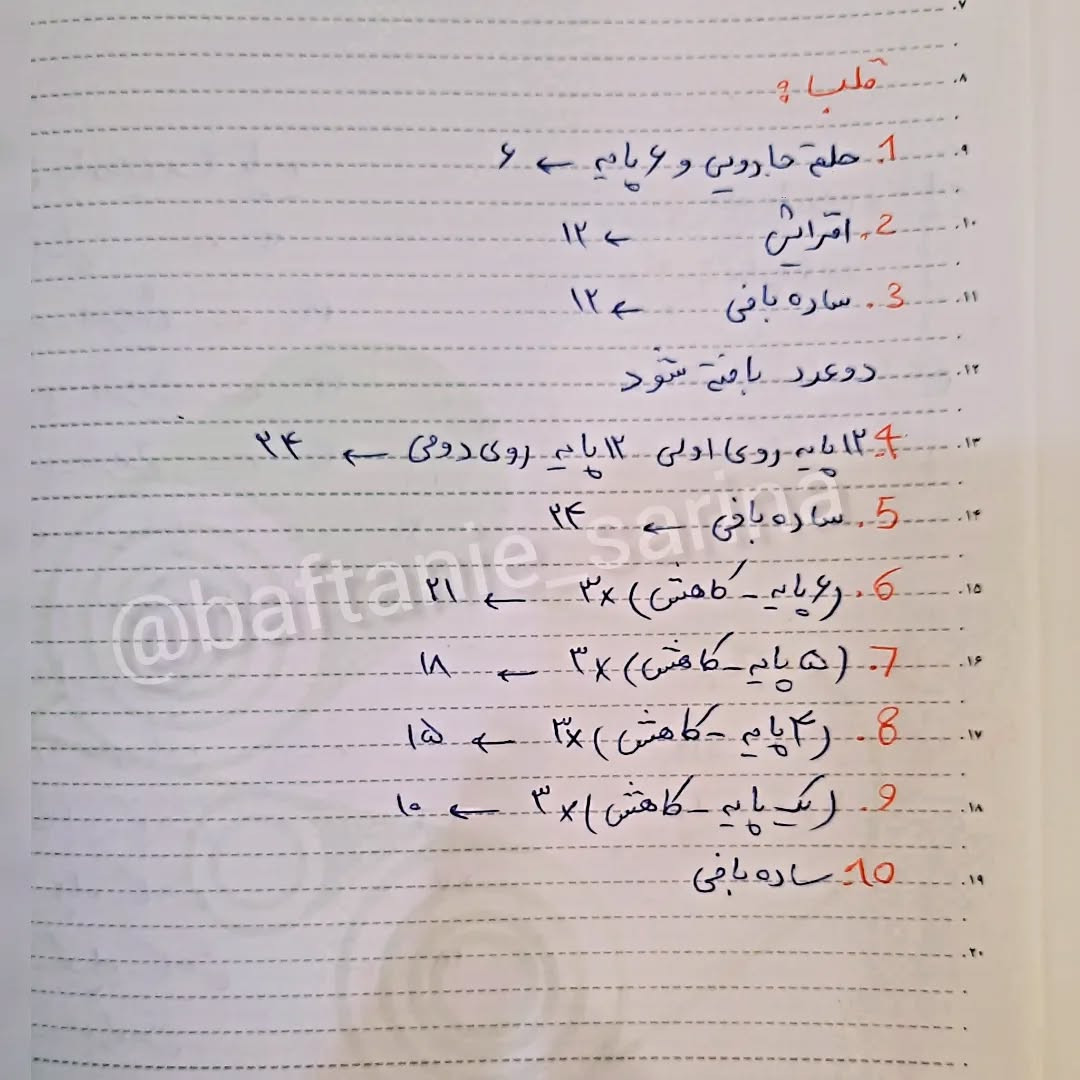 ۷
۸ قلب :
۹ 1. حلقه جادویی و ۶ پایه ← ۶
۱۰ 2. افزایش ← ۱۲
۱۱ 3. ساده بافی ← ۱۲
۱۲ دو عدد بافته شود
۱۳ 4. ۱۲ پایه روی اولی ۱۲ پایه روی دومی ← ۲۴
۱۴ 5. ساده بافی ← ۲۴
@baftanie_sarina
۱۵ 6. (۶ پایه - کاهش) ×۳ ← ۲۱
۱۶ 7. (۵ پایه - کاهش) ×۳ ← ۱۸
۱۷ 8. (۴ پایه - کاهش) ×۳ ← ۱۵
۱۸ 9. (یک پایه - کاهش) ×۳ ← ۱۰
۱۹ 10. ساده بافی
۲۰